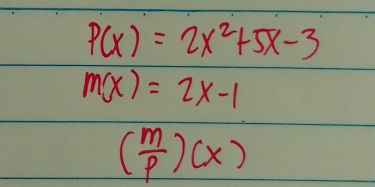 P(x) = 2x²+5x-3
m(x) = 2x-1
(m/p)(x)